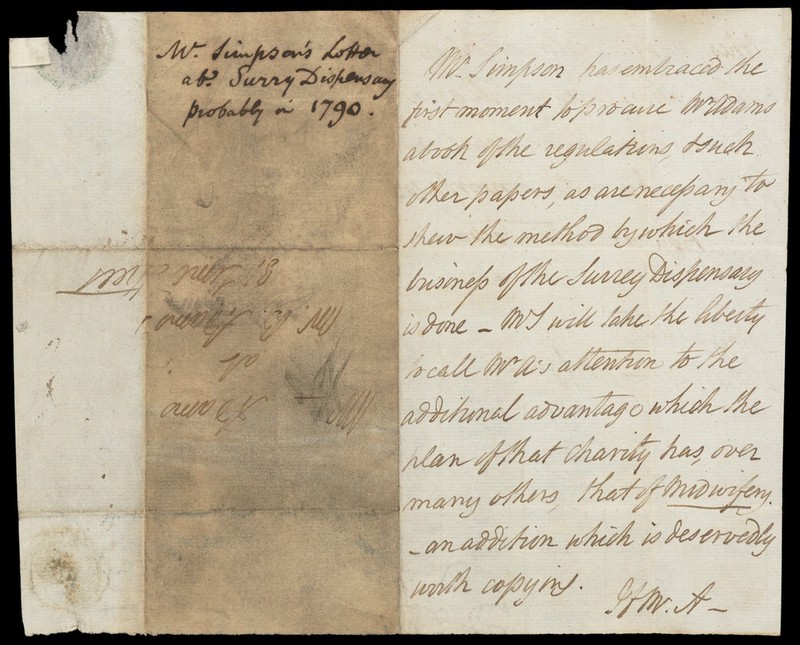 Mr. Simpson's Letter
abt. Surry Dispensary
probably in 1790.
Mr. Adams
at
Mr. Adams
81
Street
Mr. Simpson has embraced the
first moment to procure Mr Adams
a book of the regulations, & such
other papers, as are necessary to
shew the method by which the
business of the Surrey Dispensary
is done – Mr S will take the liberty
to call Mr A's attention to the
additional advantage which the
plan of that charity has, over
many others, that of Midwifery.
– an addition which is deservedly
worth copying.
If Mr. A –